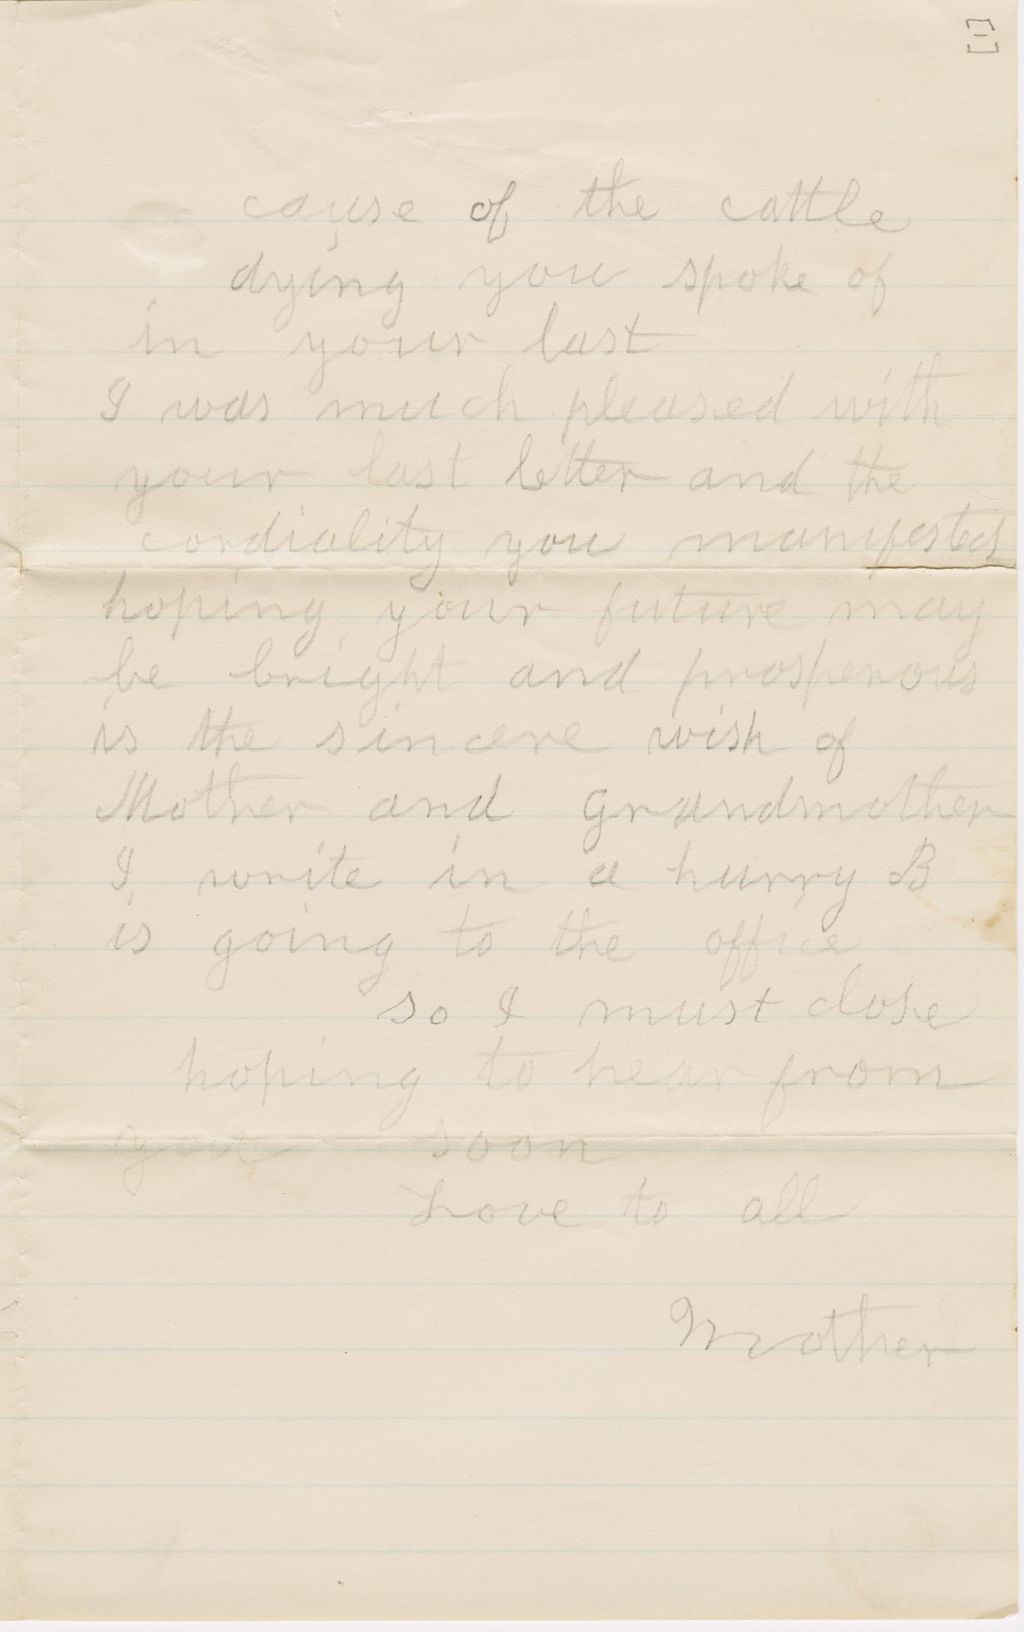 cause of the cattle
dying you spoke of
in your last
I was much pleased with
your last letter and the
cordiality you manifested
hoping your future may
be bright and prosperous
is the sincere wish of
Mother and Grandmother
I write in a hurry B
is going to the office
so I must close
hoping to hear from
you soon
Love to all
Mother